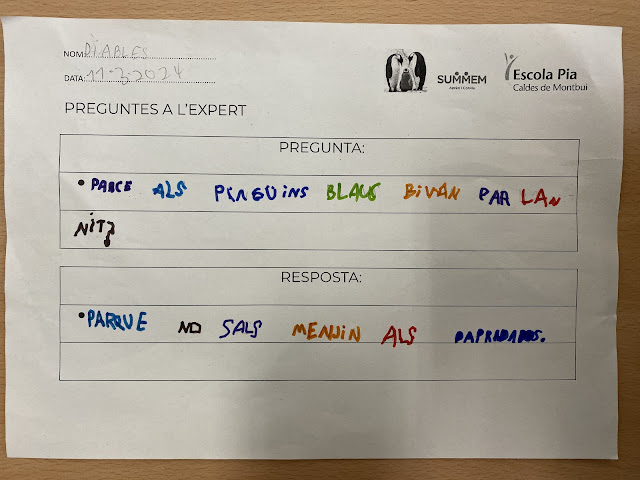 NOM: DIABLES
DATA: 11-3-2024
SUMMEM
Escola Pia
Caldes de Montbui
PREGUNTES A L'EXPERT
PREGUNTA:
• PARCE ALS PENGUINS BLAUS BIVAN PAR LAN
NIT?
RESPOSTA:
• PARQUE NO SALS MENJIN ALS DAPRADADOS.